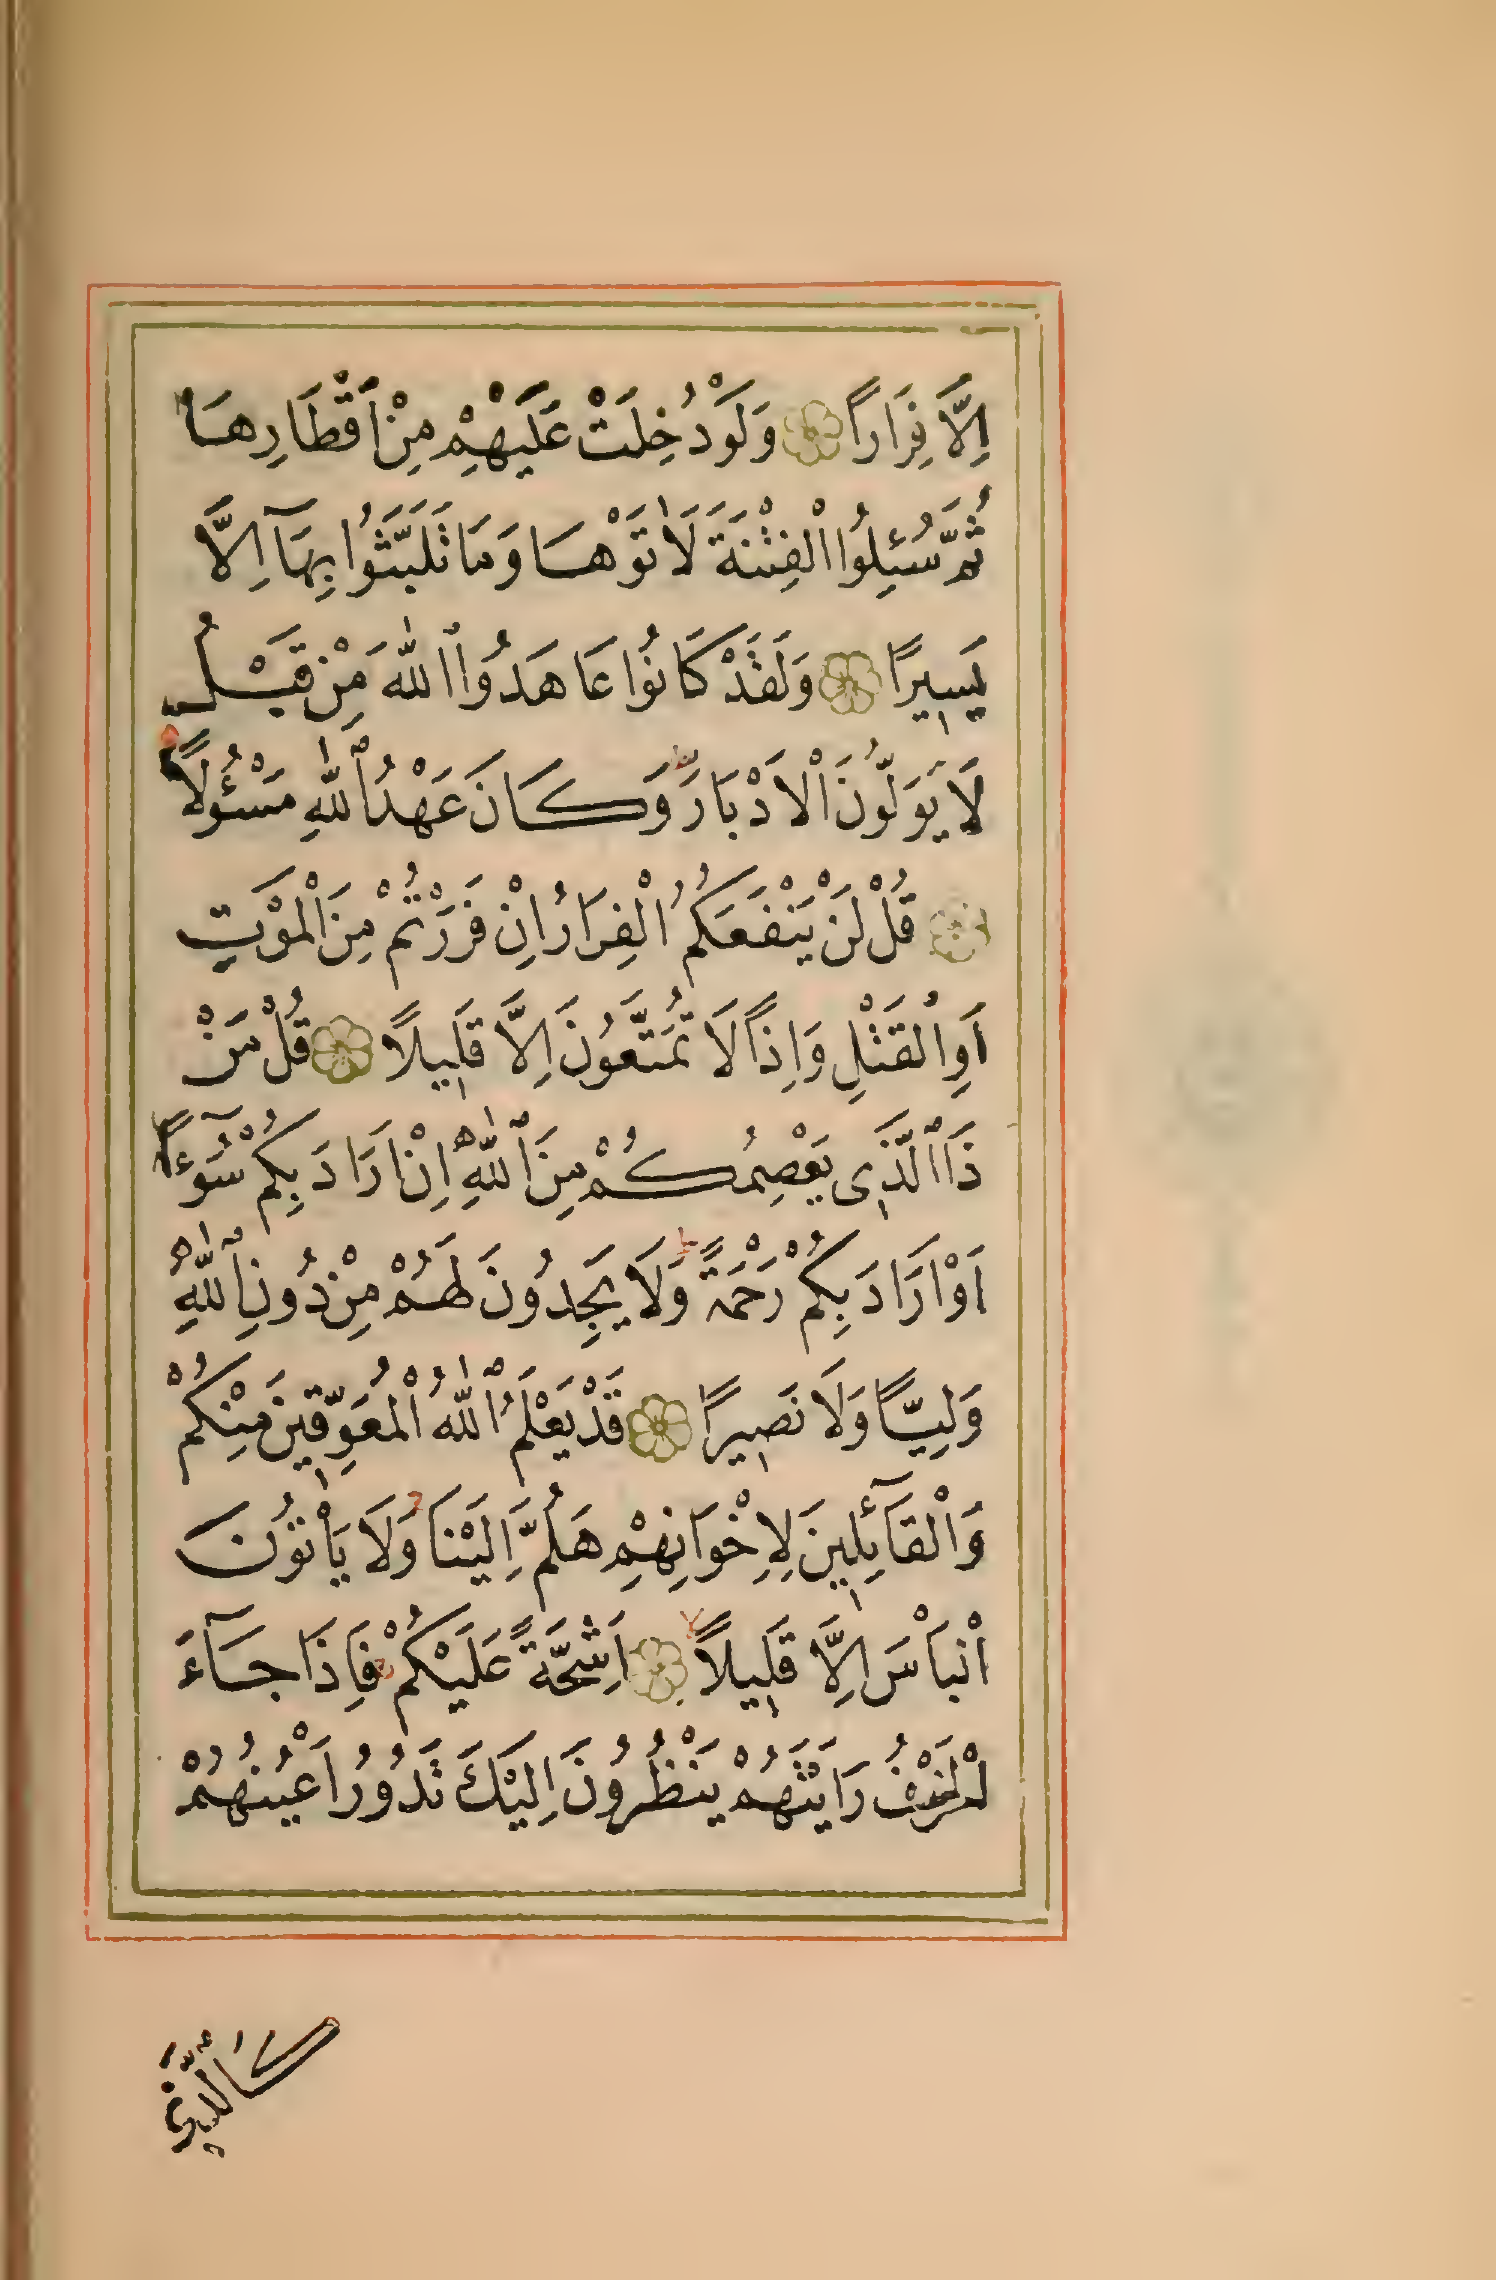 اِلَّا فِرَارًا وَلَوْ دُخِلَتْ عَلَيْهِمْ مِنْ اَقْطَارِهَا
ثُمَّ سُئِلُوا الْفِتْنَةَ لَاٰتَوْهَا وَمَا تَلَبَّثُوا بِهَآ اِلَّا
يَسِيرًا وَلَقَدْ كَانُوا عَاهَدُوا اللّٰهَ مِنْ قَبْلُ
لَا يُوَلُّونَ الْاَدْبَارَ وَكَانَ عَهْدُ اللّٰهِ مَسْئُولًا
قُلْ لَنْ يَنْفَعَكُمُ الْفِرَارُ اِنْ فَرَرْتُمْ مِنَ الْمَوْتِ
اَوِ الْقَتْلِ وَاِذًا لَا تُمَتَّعُونَ اِلَّا قَلِيلًا قُلْ مَنْ
ذَا الَّذِى يَعْصِمُكُمْ مِنَ اللّٰهِ اِنْ اَرَادَ بِكُمْ سُوٓءًا
اَوْ اَرَادَ بِكُمْ رَحْمَةً وَلَا يَجِدُونَ لَهُمْ مِنْ دُونِ اللّٰهِ
وَلِيًّا وَلَا نَصِيرًا قَدْ يَعْلَمُ اللّٰهُ الْمُعَوِّقِينَ مِنْكُمْ
وَالْقَآئِلِينَ لِاِخْوَانِهِمْ هَلُمَّ اِلَيْنَا وَلَا يَاْتُونَ
الْبَاْسَ اِلَّا قَلِيلًا اَشِحَّةً عَلَيْكُمْ فَاِذَا جَآءَ
الْخَوْفُ رَاَيْتَهُمْ يَنْظُرُونَ اِلَيْكَ تَدُورُ اَعْيُنُهُمْ
كَالَّذِى